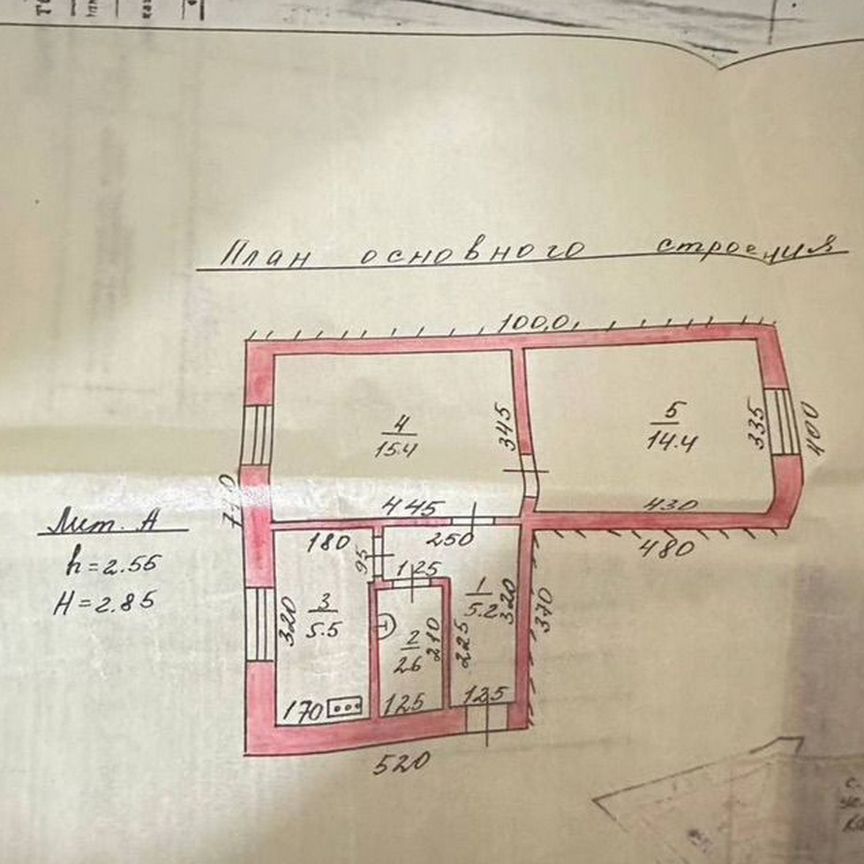 План основного строения
100,0
4
15.4
345
5
14.4
335
400
445
430
480
Лит. А
h=2.55
H=2.85
180
95
250
125
320
3
5.5
2
2.6
210
225
1
5.2
320
370
170
125
135
520